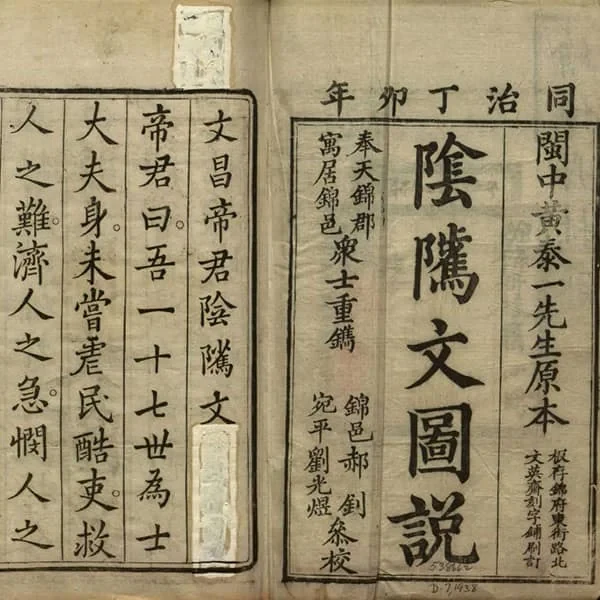 同治丁卯年
閩中黃泰一先生原本
板存錦府東街路北
文英齋刻字鋪刷訂
陰隲文圖說
奉天錦郡
寓居錦邑
眾士重鐫
錦邑郝釗
宛平劉光煜
叅校
D.7,1938
文昌帝君陰隲文
帝君曰。吾一十七世為士
大夫身。未嘗虐民酷吏。救
人之難。濟人之急。憫人之